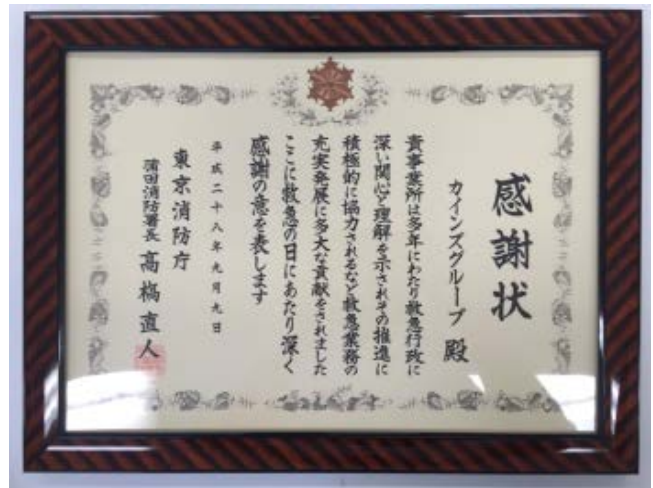 感謝状
カインズグループ 殿
貴事業所は多年にわたり救急行政に
深い関心と理解を示されその推進に
積極的に協力されるなど救急業務の
充実発展に多大な貢献をされました
ここに救急の日にあたり深く
感謝の意を表します
平成二十八年九月九日
東京消防庁
蒲田消防署長 高橋直人